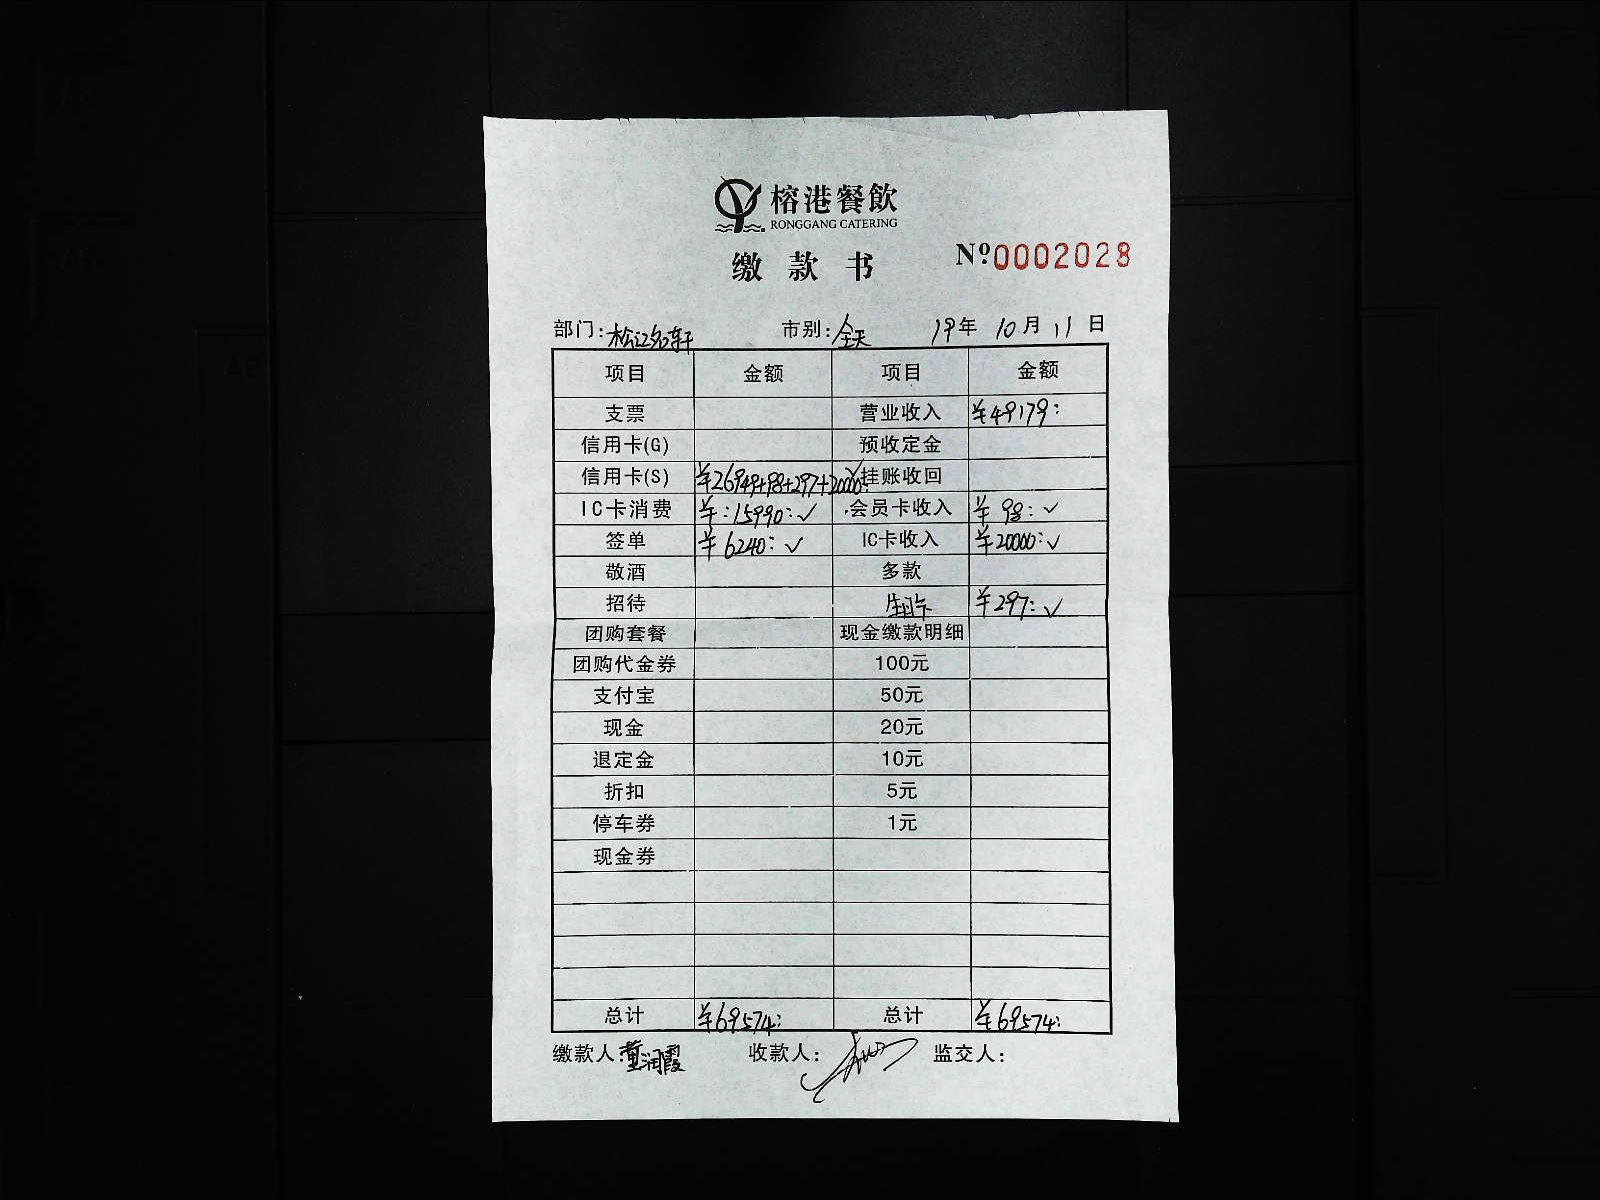 榕港餐飲
RONGGANG CATERING
缴 款 书 Nº0002028
部门:松江名轩 市别:全天 19年 10月 11日
项目 金额 项目 金额
支票 营业收入 ¥49179:
信用卡(G) 预收定金
信用卡(S) ¥26949+98+297+20000:✓ 挂账收回
IC卡消费 ¥:15990:✓ 会员卡收入 ¥98:✓
签单 ¥6240:✓ IC卡收入 ¥20000:✓
敬酒 多款
招待 生日卡 ¥297:✓
团购套餐 现金缴款明细
团购代金券 100元
支付宝 50元
现金 20元
退定金 10元
折扣 5元
停车券 1元
现金券
总计 ¥69574: 总计 ¥69574:
缴款人:董润霞 收款人: 监交人: